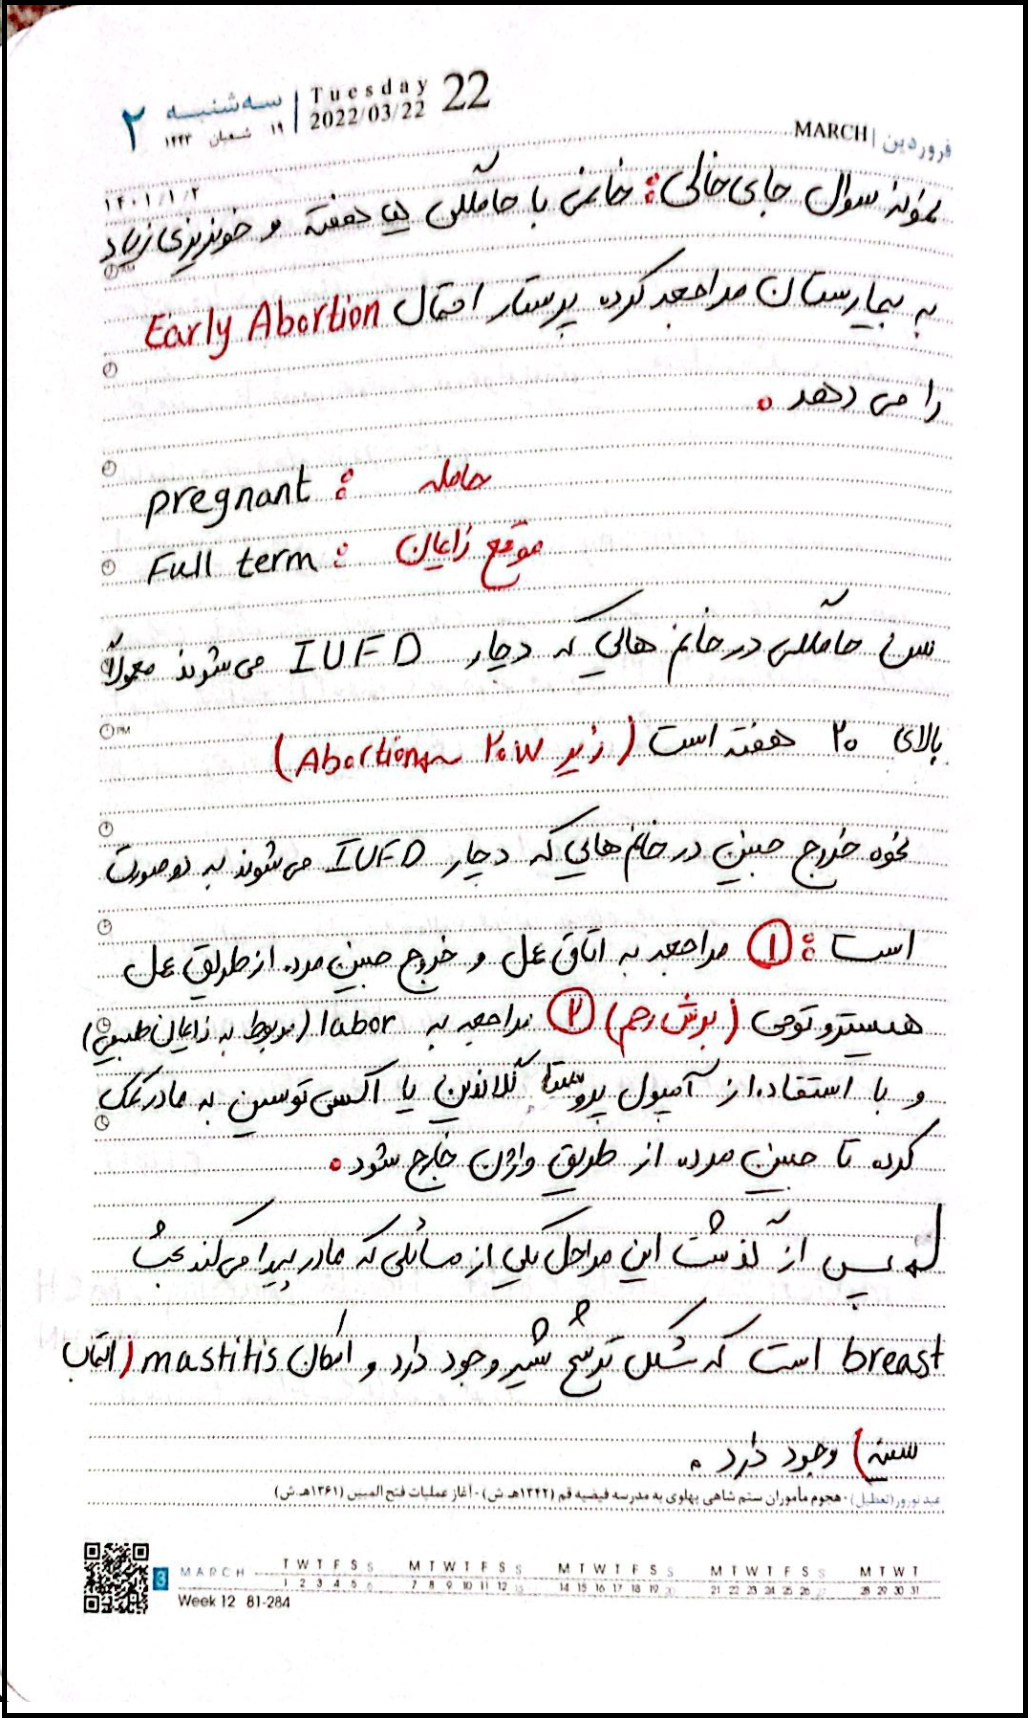 22 Tuesday 2022/03/22 سه‌شنبه ۱۹ شعبان ۱۴۴۳ ۲
فروردین | MARCH
۱۴۰۱/۱/۲
نمونه سوال جای خالی: خانمی با حاملگی هفته و خونریزی زیاد
به بیمارستان مراجعه کرده پرستار احتمال Early Abortion
را می دهد.
pregnant : حامله
Full term : موقع زایمان
سن حاملگی در خانم هایی که دچار IUFD می شوند معمولاً
بالای ۲۰ هفته است (زیر ۲۰w ~ Abortion)
نحوه خروج جنین در خانم هایی که دچار IUFD می شوند به دو صورت
است: ① مراجعه به اتاق عمل و خروج جنین مرده از طریق عمل
هیستروتومی (برش رحم) ② مراجعه به labor (مربوط به زایمان طبیعی)
و با استفاده از آمپول پروستاگلاندین یا اکسی توسین به مادر کمک
کرده تا جنین مرده از طریق واژن خارج شود.
پس از گذشت این مراحل یکی از مسائلی که مادر پیدا می کند بحث
breast است که مشکل ترشح شیر وجود دارد و امکان mastitis (التهاب
سینه) وجود دارد.
عید نوروز (تعطیل) - هجوم مأموران ستم شاهی پهلوی به مدرسه فیضیه قم (۱۳۴۲هـ ش) - آغاز عملیات فتح المبین (۱۳۶۱هـ ش)
T W T F S S M T W T F S S M T W T F S S M T W T F S S M T W T
3 MARCH 1 2 3 4 5 6 7 8 9 10 11 12 13 14 15 16 17 18 19 20 21 22 23 24 25 26 27 28 29 30 31
Week 12 81-284